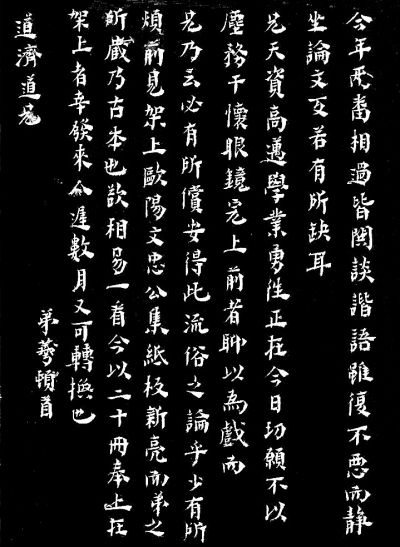 今年两番相過皆閒談諧語雖復不惡而靜
坐論文文若有所缺耳
兄天資高邁學業勇往正在今日切願不以
塵務干懷眼鏡完上前者聊以為戲而
兄乃云必有所償安得此流俗之論乎少有所
煩前見架上歐陽文忠公集紙板新亮而弟之
所藏乃古本也欲相易一看今以二十冊奉上在
架上者幸發來介遲數月又可轉換也
弟 頓首
道濟道兄